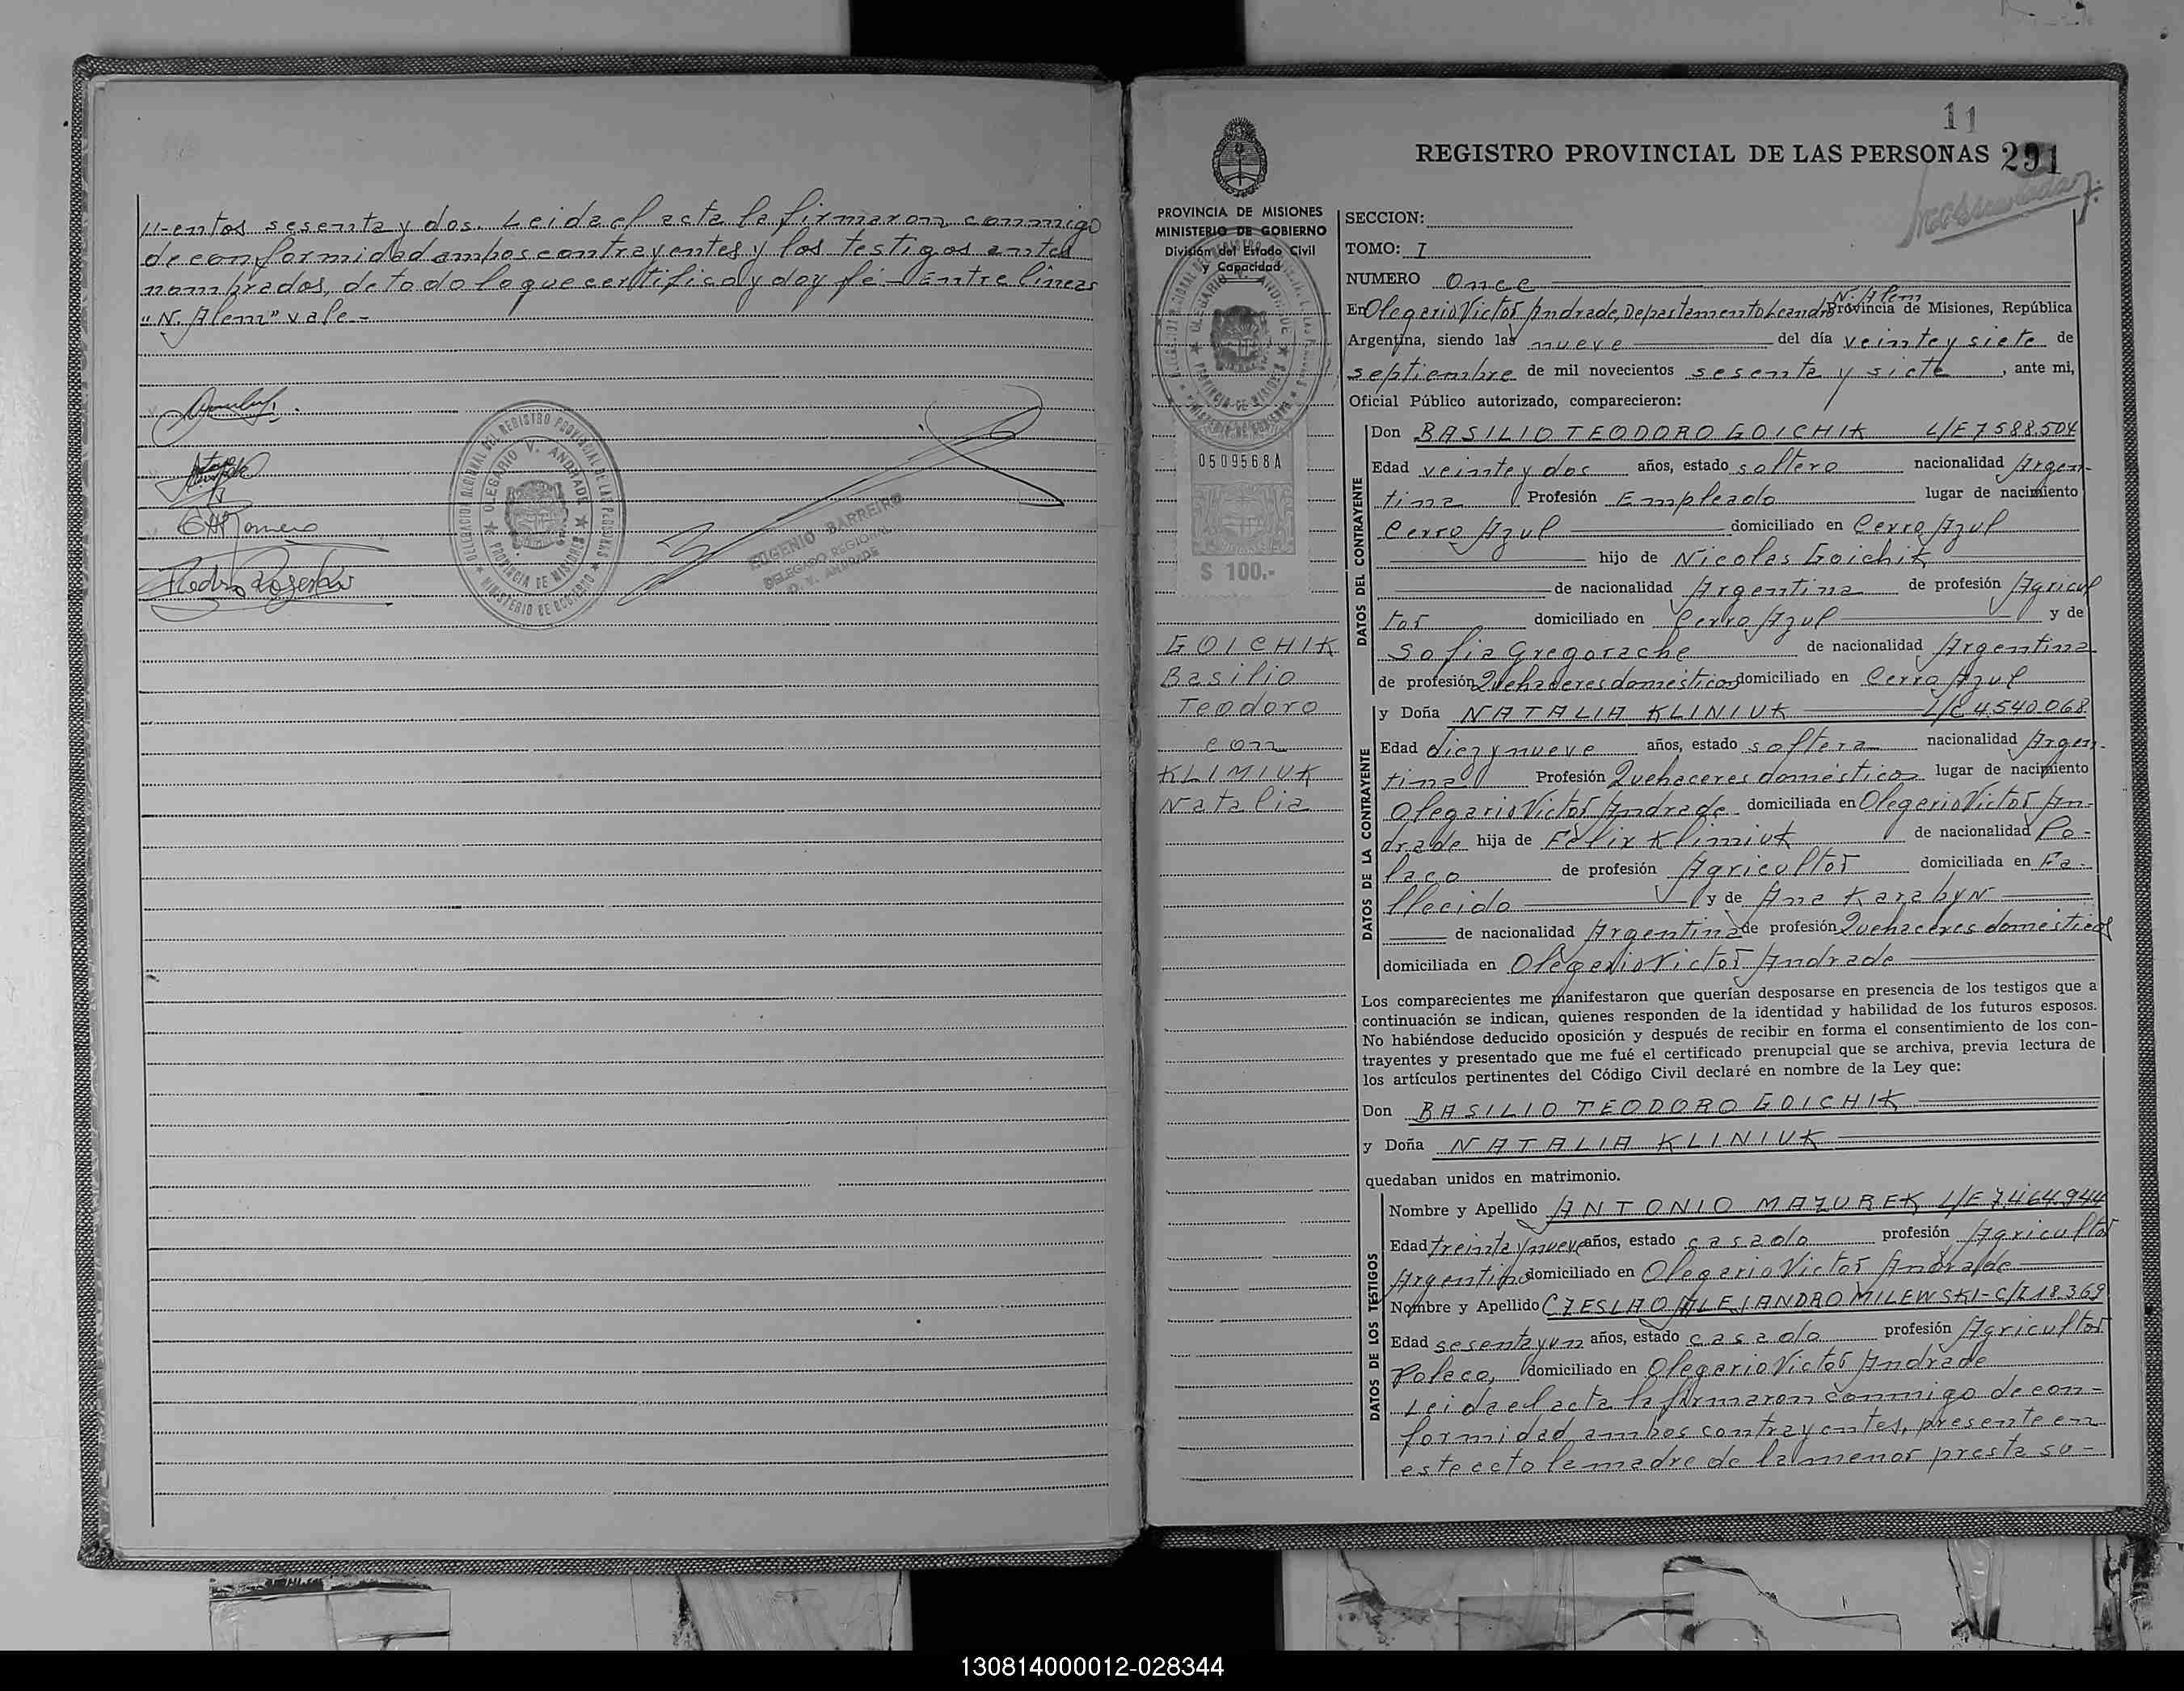 cientos sesenta y dos. Leida el acta la firmaron conmigo
de conformidad ambos contrayentes y los testigos antes
nombrados, de todo lo que certifico y doy fé - Entre líneas
"N. Alem" vale -
DELEGACION REGIONAL DEL REGISTRO PROVINCIAL DE LAS PERSONAS
OLEGARIO V. ANDRADE
PROVINCIA DE MISIONES
MINISTERIO DE GOBIERNO
EUGENIO BARREIRO
DELEGADO REGIONAL
O. V. ANDRADE
11
REGISTRO PROVINCIAL DE LAS PERSONAS 291
PROVINCIA DE MISIONES
MINISTERIO DE GOBIERNO
División del Estado Civil
y Capacidad
0509568A
$ 100.-
GOICHIK
Basilio
Teodoro
con
KLIMIUK
Natalia
SECCION:
TOMO: I
NUMERO Once
N. Alem
En Olegario Victor Andrade, Departamento Leandro Provincia de Misiones, República
Argentina, siendo las nueve del día veinte y siete de
septiembre de mil novecientos sesenta y siete, ante mi,
Oficial Público autorizado, comparecieron:
DATOS DEL CONTRAYENTE
Don BASILIO TEODORO GOICHIK L/E 7.588.504
Edad veinte y dos años, estado soltero nacionalidad Argen-
tina Profesión Empleado lugar de nacimiento
Cerro Azul domiciliado en Cerro Azul
hijo de Nicolas Goichik
de nacionalidad Argentina de profesión Agricul
tor domiciliado en Cerro Azul y de
Sofia Gregorache de nacionalidad Argentina
de profesión Quehaceres domesticos domiciliado en Cerro Azul
DATOS DE LA CONTRAYENTE
y Doña NATALIA KLINIUK L/C 4.540.068
Edad diez y nueve años, estado soltera nacionalidad Argen-
tina Profesión Quehaceres domésticos lugar de nacimiento
Olegario Victor Andrade domiciliada en Olegario Victor An-
drade hija de Félix Klimiuk de nacionalidad Po-
laco de profesión Agricultor domiciliada en Fa-
llecido y de Ana Karabyn
de nacionalidad Argentina de profesión Quehaceres domésticos
domiciliada en Olegario Victor Andrade
Los comparecientes me manifestaron que querían desposarse en presencia de los testigos que a
continuación se indican, quienes responden de la identidad y habilidad de los futuros esposos.
No habiéndose deducido oposición y después de recibir en forma el consentimiento de los con-
trayentes y presentado que me fué el certificado prenupcial que se archiva, previa lectura de
los artículos pertinentes del Código Civil declaré en nombre de la Ley que:
Don BASILIO TEODORO GOICHIK
y Doña NATALIA KLINIUK
quedaban unidos en matrimonio.
DATOS DE LOS TESTIGOS
Nombre y Apellido ANTONIO MAZUREK L/E 7.464.944
Edad treinta y nueve años, estado casado profesión Agricultor
Argentino domiciliado en Olegario Victor Andrade
Nombre y Apellido CZESLAO ALEJANDRO MILEWSKI - C/I 18.369
Edad sesenta y un años, estado casado profesión Agricultor
Polaco, domiciliado en Olegario Victor Andrade
Leida el acta la firmaron conmigo de con-
formidad ambos contrayentes, presente en
este acto la madre de la menor presta su-
130814000012-028344